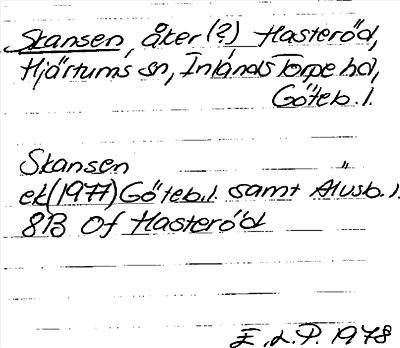 Skansen, åker (?) Hasteröd,
Hjärtums sn, Inlands Torpe hd,
Göteb. l.
Skansen
ek (1977) Göteb. l. samt Älvsb. l.
8B 0f Hasteröd
E. L. P. 1978